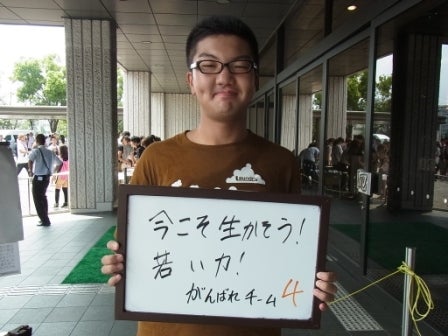 今こそ生かそう!
若い力!
がんばれチーム4